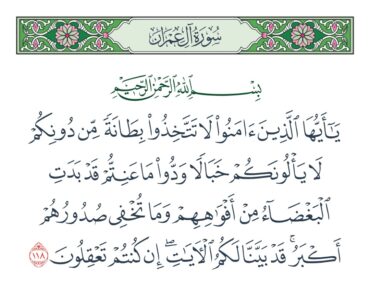 سُورَةُ آلِ عِمْرَانَ
بِسْمِ اللَّهِ الرَّحْمَٰنِ الرَّحِيمِ
يَٰٓأَيُّهَا ٱلَّذِينَ ءَامَنُوا۟ لَا تَتَّخِذُوا۟ بِطَانَةً مِّن دُونِكُمْ
لَا يَأْلُونَكُمْ خَبَالًا وَدُّوا۟ مَا عَنِتُّمْ قَدْ بَدَتِ
ٱلْبَغْضَآءُ مِنْ أَفْوَٰهِهِمْ وَمَا تُخْفِى صُدُورُهُمْ
أَكْبَرُ ۚ قَدْ بَيَّنَّا لَكُمُ ٱلْءَايَٰتِ ۖ إِن كُنتُمْ تَعْقِلُونَ ١١٨